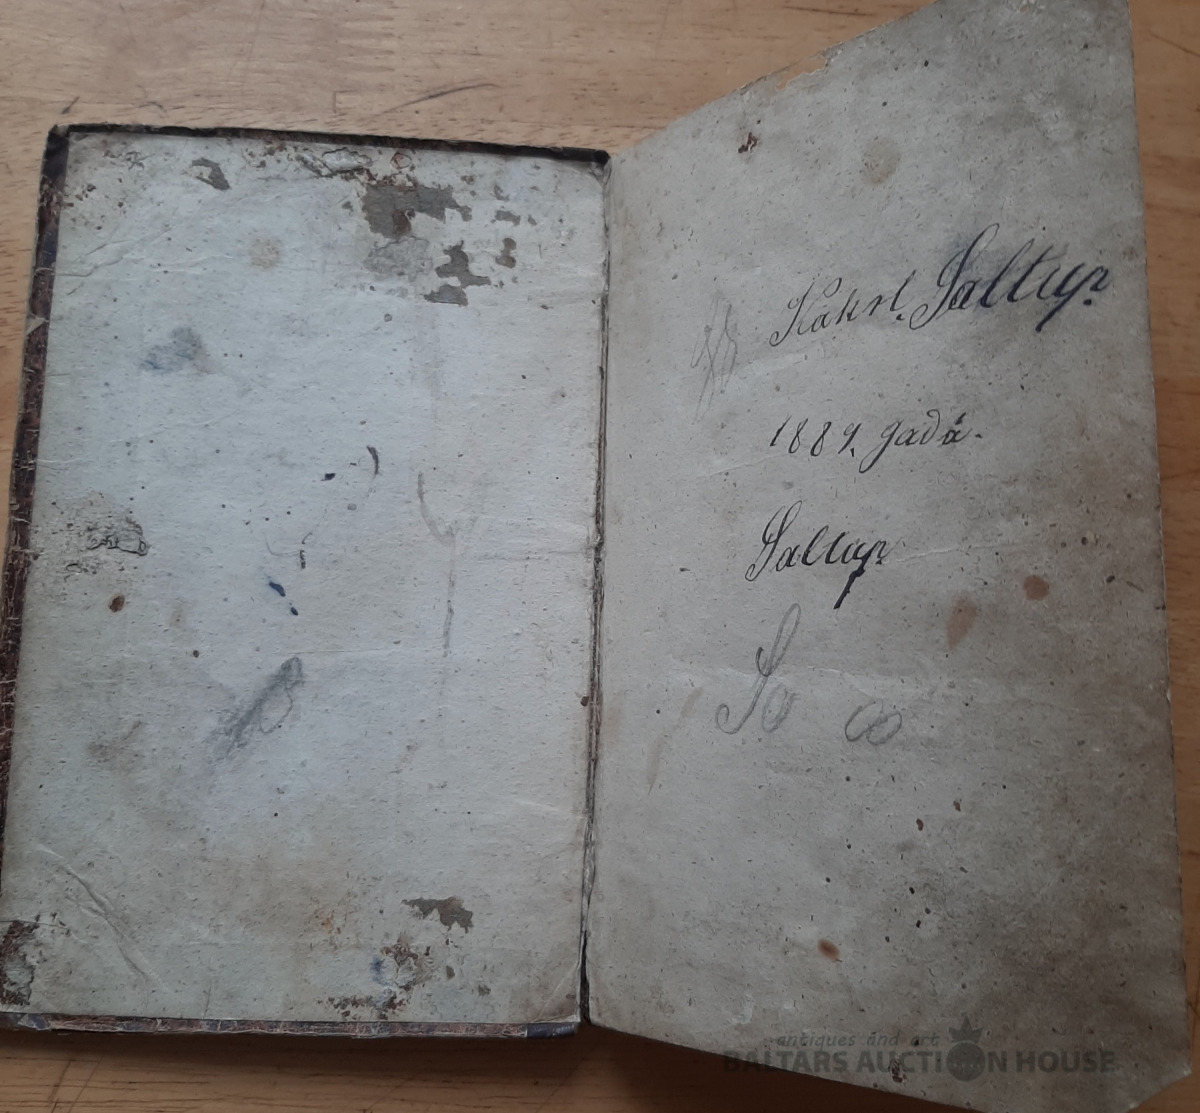 Kahrl. Saltup
1889. gadá.
Saltup
So
antiques and art
BALTARS AUCTION HOUSE